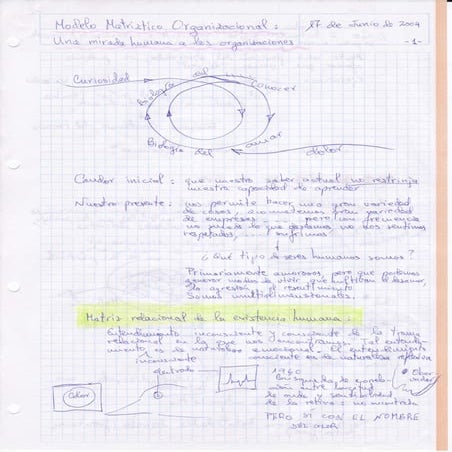 Modelo Matrístico Organizacional : 17 de Junio de 2004
Una mirada humana a las organizaciones -1-
Curiosidad
Biología del conocer
Biología del amar
dolor
Candor inicial : que nuestro saber actual no restrinja
nuestra capacidad de aprender
Nuestro presente : nos permite hacer una gran variedad
de cosas, gran variedad
de empresas ... pero con frecuencia
no nos sentimos
respetados, ... sufrimos
¿Qué tipo de seres humanos somos?
Primariamente amorosos, pero que podemos
generar modos de vivir que cultivan
la agresión, el resentimiento
Somos multidimensionales.
Matriz relacional de la existencia humana :
Entendimiento inconsciente y consciente de la trama
relacional en la que nos encontramos. Tal entendi-
miento es de naturaleza emocional. El entendimiento
inconsciente consciente es de naturaleza reflexiva
electrodo
1960
Color
Observador
de la retina : no encontrada
PERO SÍ CON EL NOMBRE
DEL COLOR